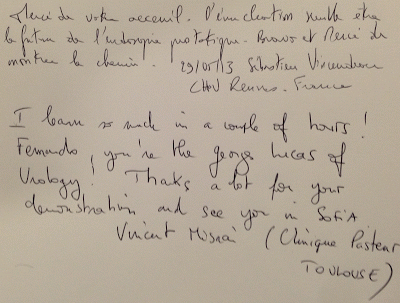 Merci de votre acceuil. L'énucléation semble être
le futur de l'endoscopie prostatique. Bravo et Merci de
montrer le chemin. 29/05/13 Sébastien Vincendeau
CHU Rennes. France
I learn so much in a couple of hours!
Fernando, you're the georges lucas of
Urology! Thaks a lot for your
demonstration and see you in Sofia
Vincent Misraï (Clinique Pasteur
TOULOUSE)